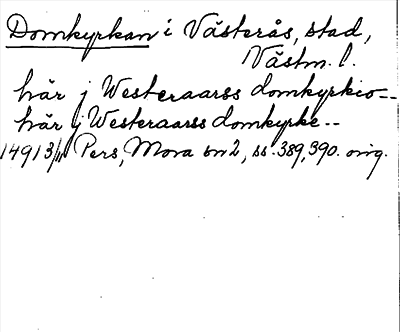 Domkyrkan i Västerås, stad,
Västm. l.
här j Westeraarss domkyrkio--
här j Westeraarss domkyrke--
1491 3/11 Pers, Mora bn 2, ss. 389, 390. orig.